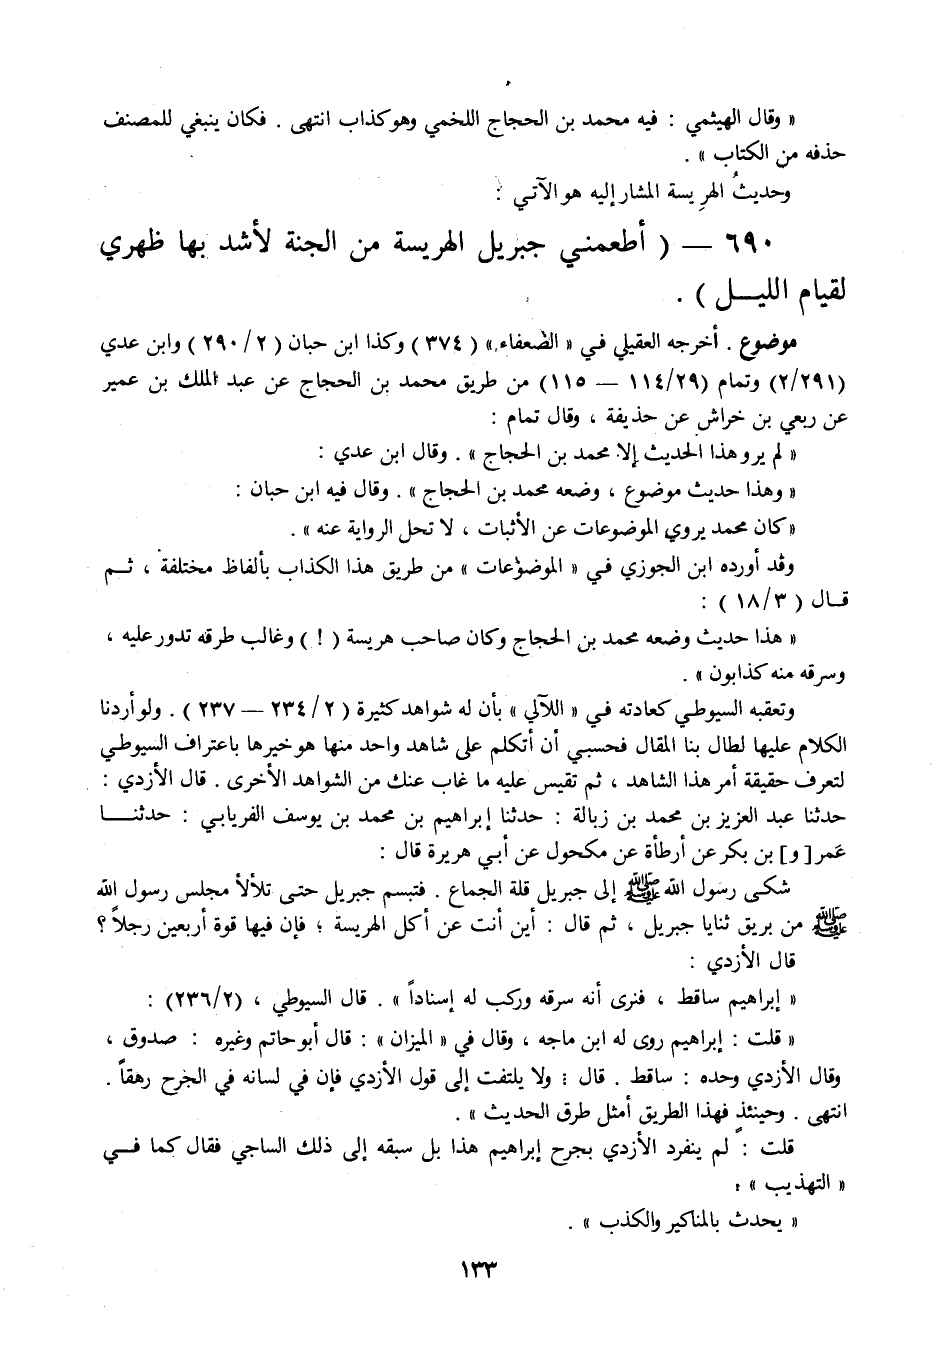 « وقال الهيثمي : فيه محمد بن الحجاج اللخمي وهو كذاب انتهى . فكان ينبغي للمصنف
حذفه من الكتاب » .
وحديثُ الهرِيسة المشار إليه هو الآتي :
٦٩٠ — ( أطعمني جبريل الهريسة من الجنة لأشد بها ظهري
لقيام الليـــل ) .
موضوع . أخرجه العقيلي في « الضعفاء » ( ٣٧٤ ) وكذا ابن حبان ( ٢ / ٢٩٠ ) وابن عدي
(٢/٢٩١) وتمام (٢٩/ ١١٤ — ١١٥) من طريق محمد بن الحجاج عن عبد الملك بن عمير
عن ربعي بن خراش عن حذيفة ، وقال تمام :
« لم يرو هذا الحديث إلا محمد بن الحجاج » . وقال ابن عدي :
« وهذا حديث موضوع ، وضعه محمد بن الحجاج » . وقال فيه ابن حبان :
«كان محمد يروي الموضوعات عن الأثبات ، لا تحل الرواية عنه » .
وقد أورده ابن الجوزي في « الموضوعات » من طريق هذا الكذاب بألفاظ مختلفة ، ثم
قال ( ٣ / ١٨ ) :
« هذا حديث وضعه محمد بن الحجاج وكان صاحب هريسة ( ! ) وغالب طرقه تدور عليه ،
وسرقه منه كذابون » .
وتعقبه السيوطي كعادته في « اللآلي » بأن له شواهد كثيرة ( ٢ / ٢٣٤ — ٢٣٧ ) . ولو أردنا
الكلام عليها لطال بنا المقال فحسبي أن أتكلم على شاهد واحد منها هو خيرها باعتراف السيوطي
لتعرف حقيقة أمر هذا الشاهد ، ثم تقيس عليه ما غاب عنك من الشواهد الأخرى . قال الأزدي :
حدثنا عبد العزيز بن محمد بن زبالة : حدثنا إبراهيم بن محمد بن يوسف الفريابي : حدثنـــا
عمر[ و] بن بكر عن أرطأة عن مكحول عن أبي هريرة قال :
شكى رسول الله ﷺ إلى جبريل قلة الجماع . فتبسم جبريل حتى تلألأ مجلس رسول الله
ﷺ من بريق ثنايا جبريل ، ثم قال : أين أنت عن أكل الهريسة ؛ فإن فيها قوة أربعين رجلاً ؟
قال الأزدي :
« إبراهيم ساقط ، فنرى أنه سرقه وركب له إسناداً » . قال السيوطي ، (٢٣٦/٢) :
« قلت : إبراهيم روى له ابن ماجه ، وقال في « الميزان » : قال أبو حاتم وغيره : صدوق ،
وقال الأزدي وحده : ساقط . قال : ولا يلتفت إلى قول الأزدي فإن في لسانه في الجرح رهقاً .
انتهى . وحينئذٍ فهذا الطريق أمثل طرق الحديث » .
قلت : لم ينفرد الأزدي بجرح إبراهيم هذا بل سبقه إلى ذلك الساجي فقال كما في
« التهذيب » :
« يحدث بالمناكير والكذب » .
١٣٣